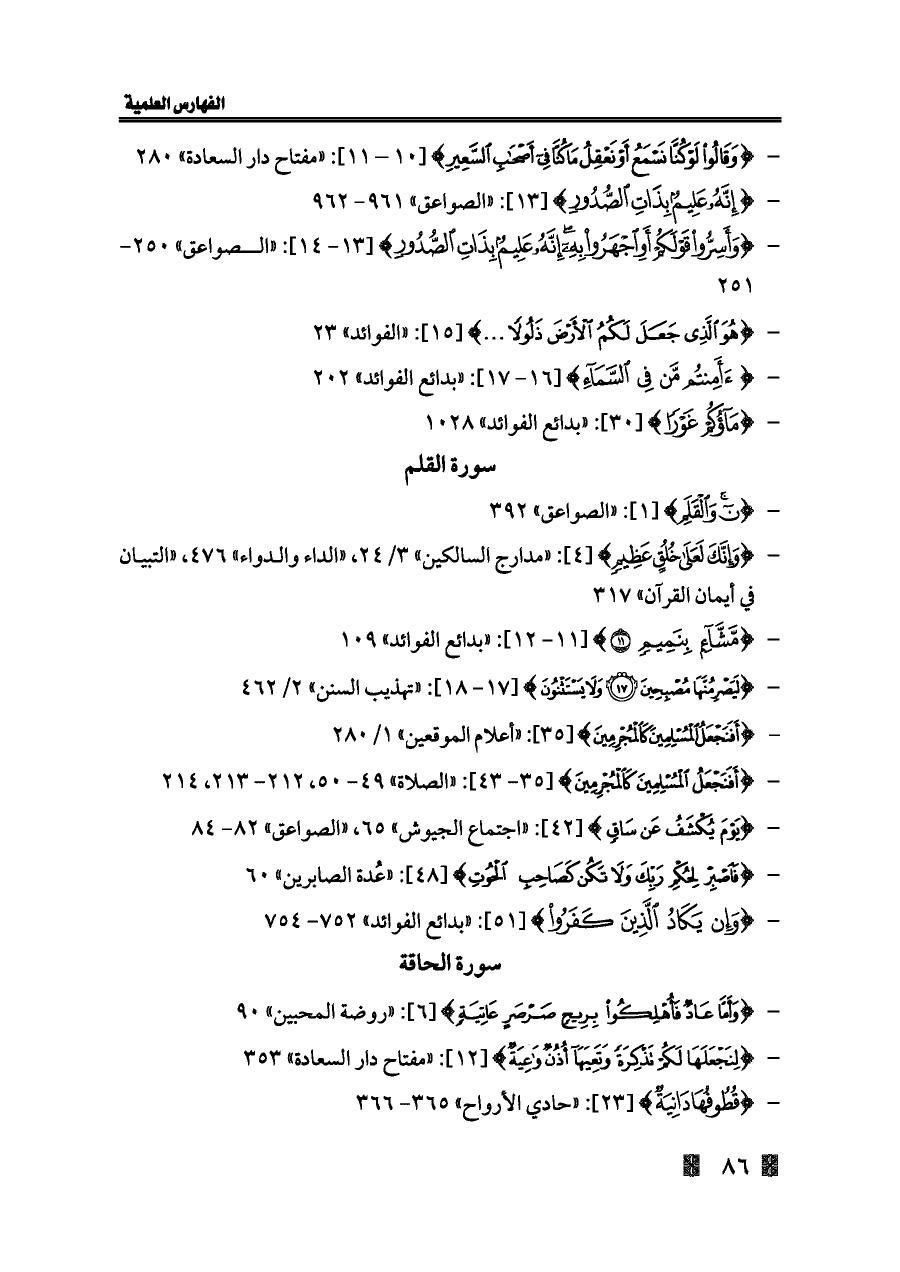 الفهارس العلمية
- ﴿وَقَالُوا۟ لَوْ كُنَّا نَسْمَعُ أَوْ نَعْقِلُ مَا كُنَّا فِىٓ أَصْحَٰبِ ٱلسَّعِيرِ﴾ [١٠ – ١١]: «مفتاح دار السعادة» ٢٨٠
- ﴿إِنَّهُۥ عَلِيمٌۢ بِذَاتِ ٱلصُّدُورِ﴾ [١٣]: «الصواعق» ٩٦١- ٩٦٢
- ﴿وَأَسِرُّوا۟ قَوْلَكُمْ أَوِ ٱجْهَرُوا۟ بِهِۦٓ ۖ إِنَّهُۥ عَلِيمٌۢ بِذَاتِ ٱلصُّدُورِ﴾ [١٣- ١٤]: «الـــصواعق» ٢٥٠-
٢٥١
- ﴿هُوَ ٱلَّذِى جَعَلَ لَكُمُ ٱلْأَرْضَ ذَلُولًا ...﴾ [١٥]: «الفوائد» ٢٣
- ﴿ءَأَمِنتُم مَّن فِى ٱلسَّمَآءِ﴾ [١٦- ١٧]: «بدائع الفوائد» ٢٠٢
- ﴿مَآؤُكُمْ غَوْرًا﴾ [٣٠]: «بدائع الفوائد» ١٠٢٨
سورة القلم
- ﴿نٓ ۚ وَٱلْقَلَمِ﴾ [١]: «الصواعق» ٣٩٢
- ﴿وَإِنَّكَ لَعَلَىٰ خُلُقٍ عَظِيمٍ﴾ [٤]: «مدارج السالكين» ٣/ ٢٤، «الداء والـدواء» ٤٧٦، «التبيـان
في أيمان القرآن» ٣١٧
- ﴿مَّشَّآءٍۭ بِنَمِيمٍ ١١﴾ [١١- ١٢]: «بدائع الفوائد» ١٠٩
- ﴿لَيَصْرِمُنَّهَا مُصْبِحِينَ ١٧ وَلَا يَسْتَثْنُونَ﴾ [١٧- ١٨]: «تهذيب السنن» ٢/ ٤٦٢
- ﴿أَفَنَجْعَلُ ٱلْمُسْلِمِينَ كَٱلْمُجْرِمِينَ﴾ [٣٥]: «أعلام الموقعين» ١/ ٢٨٠
- ﴿أَفَنَجْعَلُ ٱلْمُسْلِمِينَ كَٱلْمُجْرِمِينَ﴾ [٣٥- ٤٣]: «الصلاة» ٤٩- ٥٠، ٢١٢- ٢١٣، ٢١٤
- ﴿يَوْمَ يُكْشَفُ عَن سَاقٍ﴾ [٤٢]: «اجتماع الجيوش» ٦٥، «الصواعق» ٨٢- ٨٤
- ﴿فَٱصْبِرْ لِحُكْمِ رَبِّكَ وَلَا تَكُن كَصَاحِبِ ٱلْحُوتِ﴾ [٤٨]: «عُدة الصابرين» ٦٠
- ﴿وَإِن يَكَادُ ٱلَّذِينَ كَفَرُوا۟﴾ [٥١]: «بدائع الفوائد» ٧٥٢- ٧٥٤
سورة الحاقة
- ﴿وَأَمَّا عَادٌ فَأُهْلِكُوا۟ بِرِيحٍ صَرْصَرٍ عَاتِيَةٍ﴾ [٦]: «روضة المحبين» ٩٠
- ﴿لِنَجْعَلَهَا لَكُمْ تَذْكِرَةً وَتَعِيَهَآ أُذُنٌ وَٰعِيَةٌ﴾ [١٢]: «مفتاح دار السعادة» ٣٥٣
- ﴿قُطُوفُهَا دَانِيَةٌ﴾ [٢٣]: «حادي الأرواح» ٣٦٥- ٣٦٦
٨٦